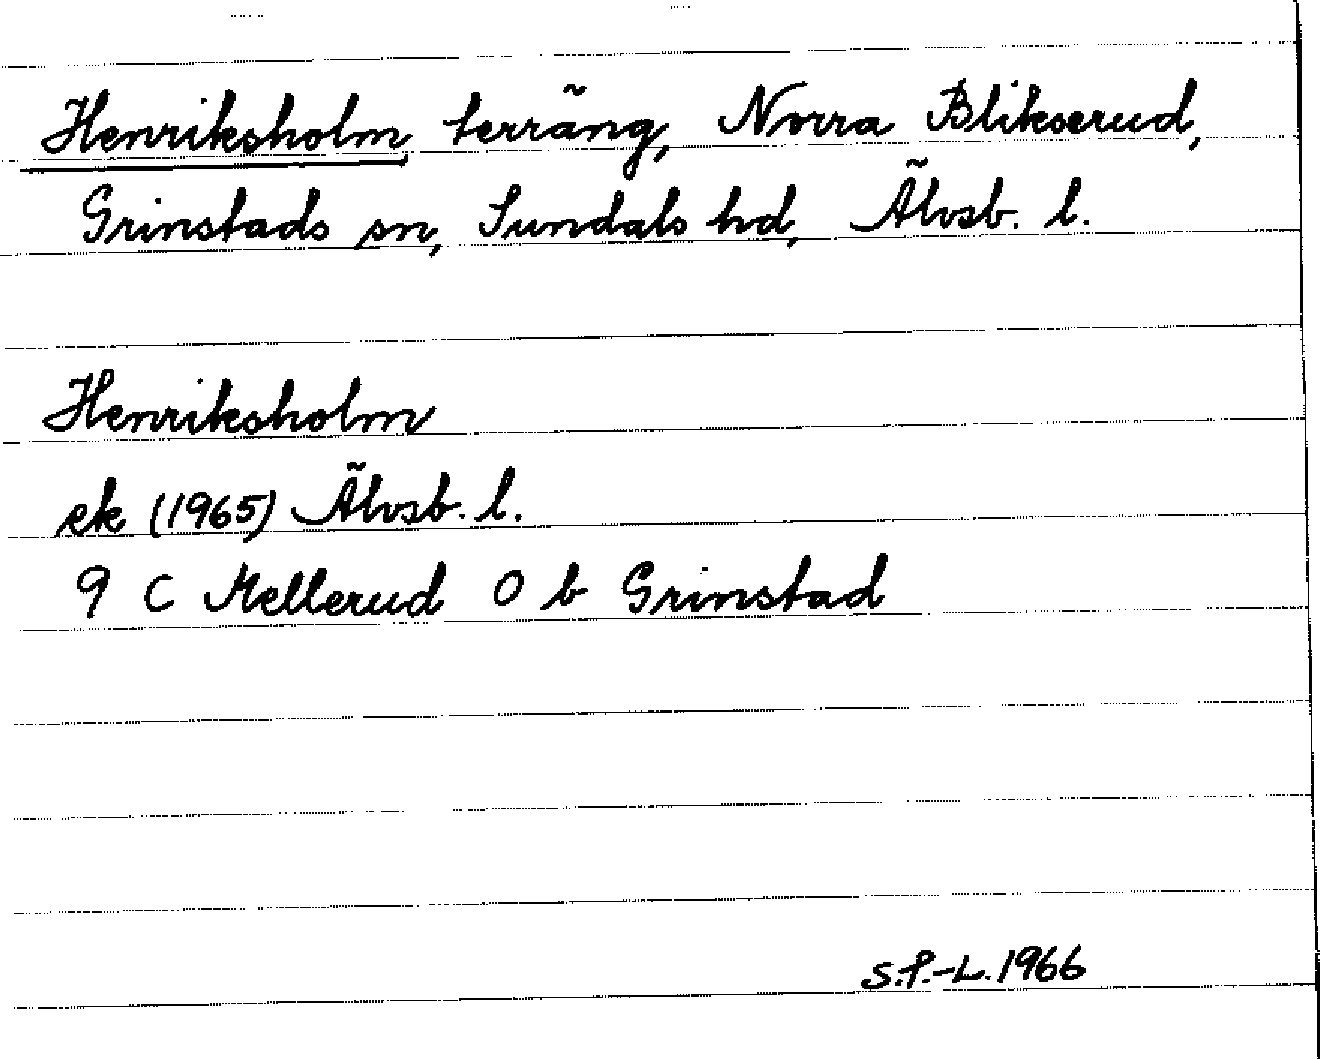 Henriksholm terräng, Norra Blikserud,
Grinstads sn, Sundals hd, Älvsb. l.
Henriksholm
ek (1965) Älvsb. l.
9 C Mellerud 0 b Grinstad
S.P.-L. 1966